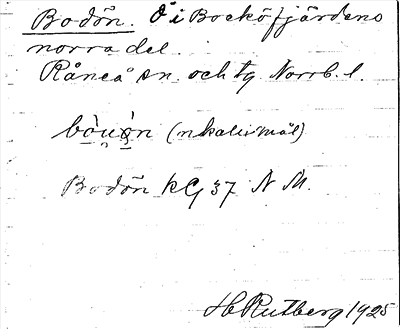 Bodön. Ö i Bocköfjärdens
norra del.
Råneå sn. och tg. Norrb. l.
bòu̯ǫn (nkalixmål)
Bodön kG 37 N M.
H Rutberg 1925